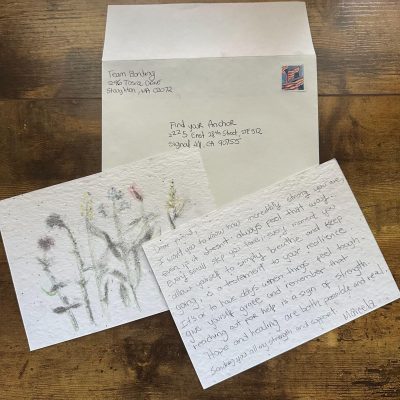 Team Bonding
1296 Tosca Drive
Stoughton, MA 02072
Find your Anchor
2225 East 28th Street, STE 512
Signal Hill, CA 90755
Dear friend,
I want you to know how incredibly strong you are
even if it doesn't always feel that way.
Every small step you take, every moment you
allow yourself to simply breathe and keep
going, is a testament to your resilience.
It's ok to have days when things feel tough,
give yourself grace and remember that
reaching out for help is a sign of strength.
Hope and healing are both possible and real.
Sending you all my strength and support.